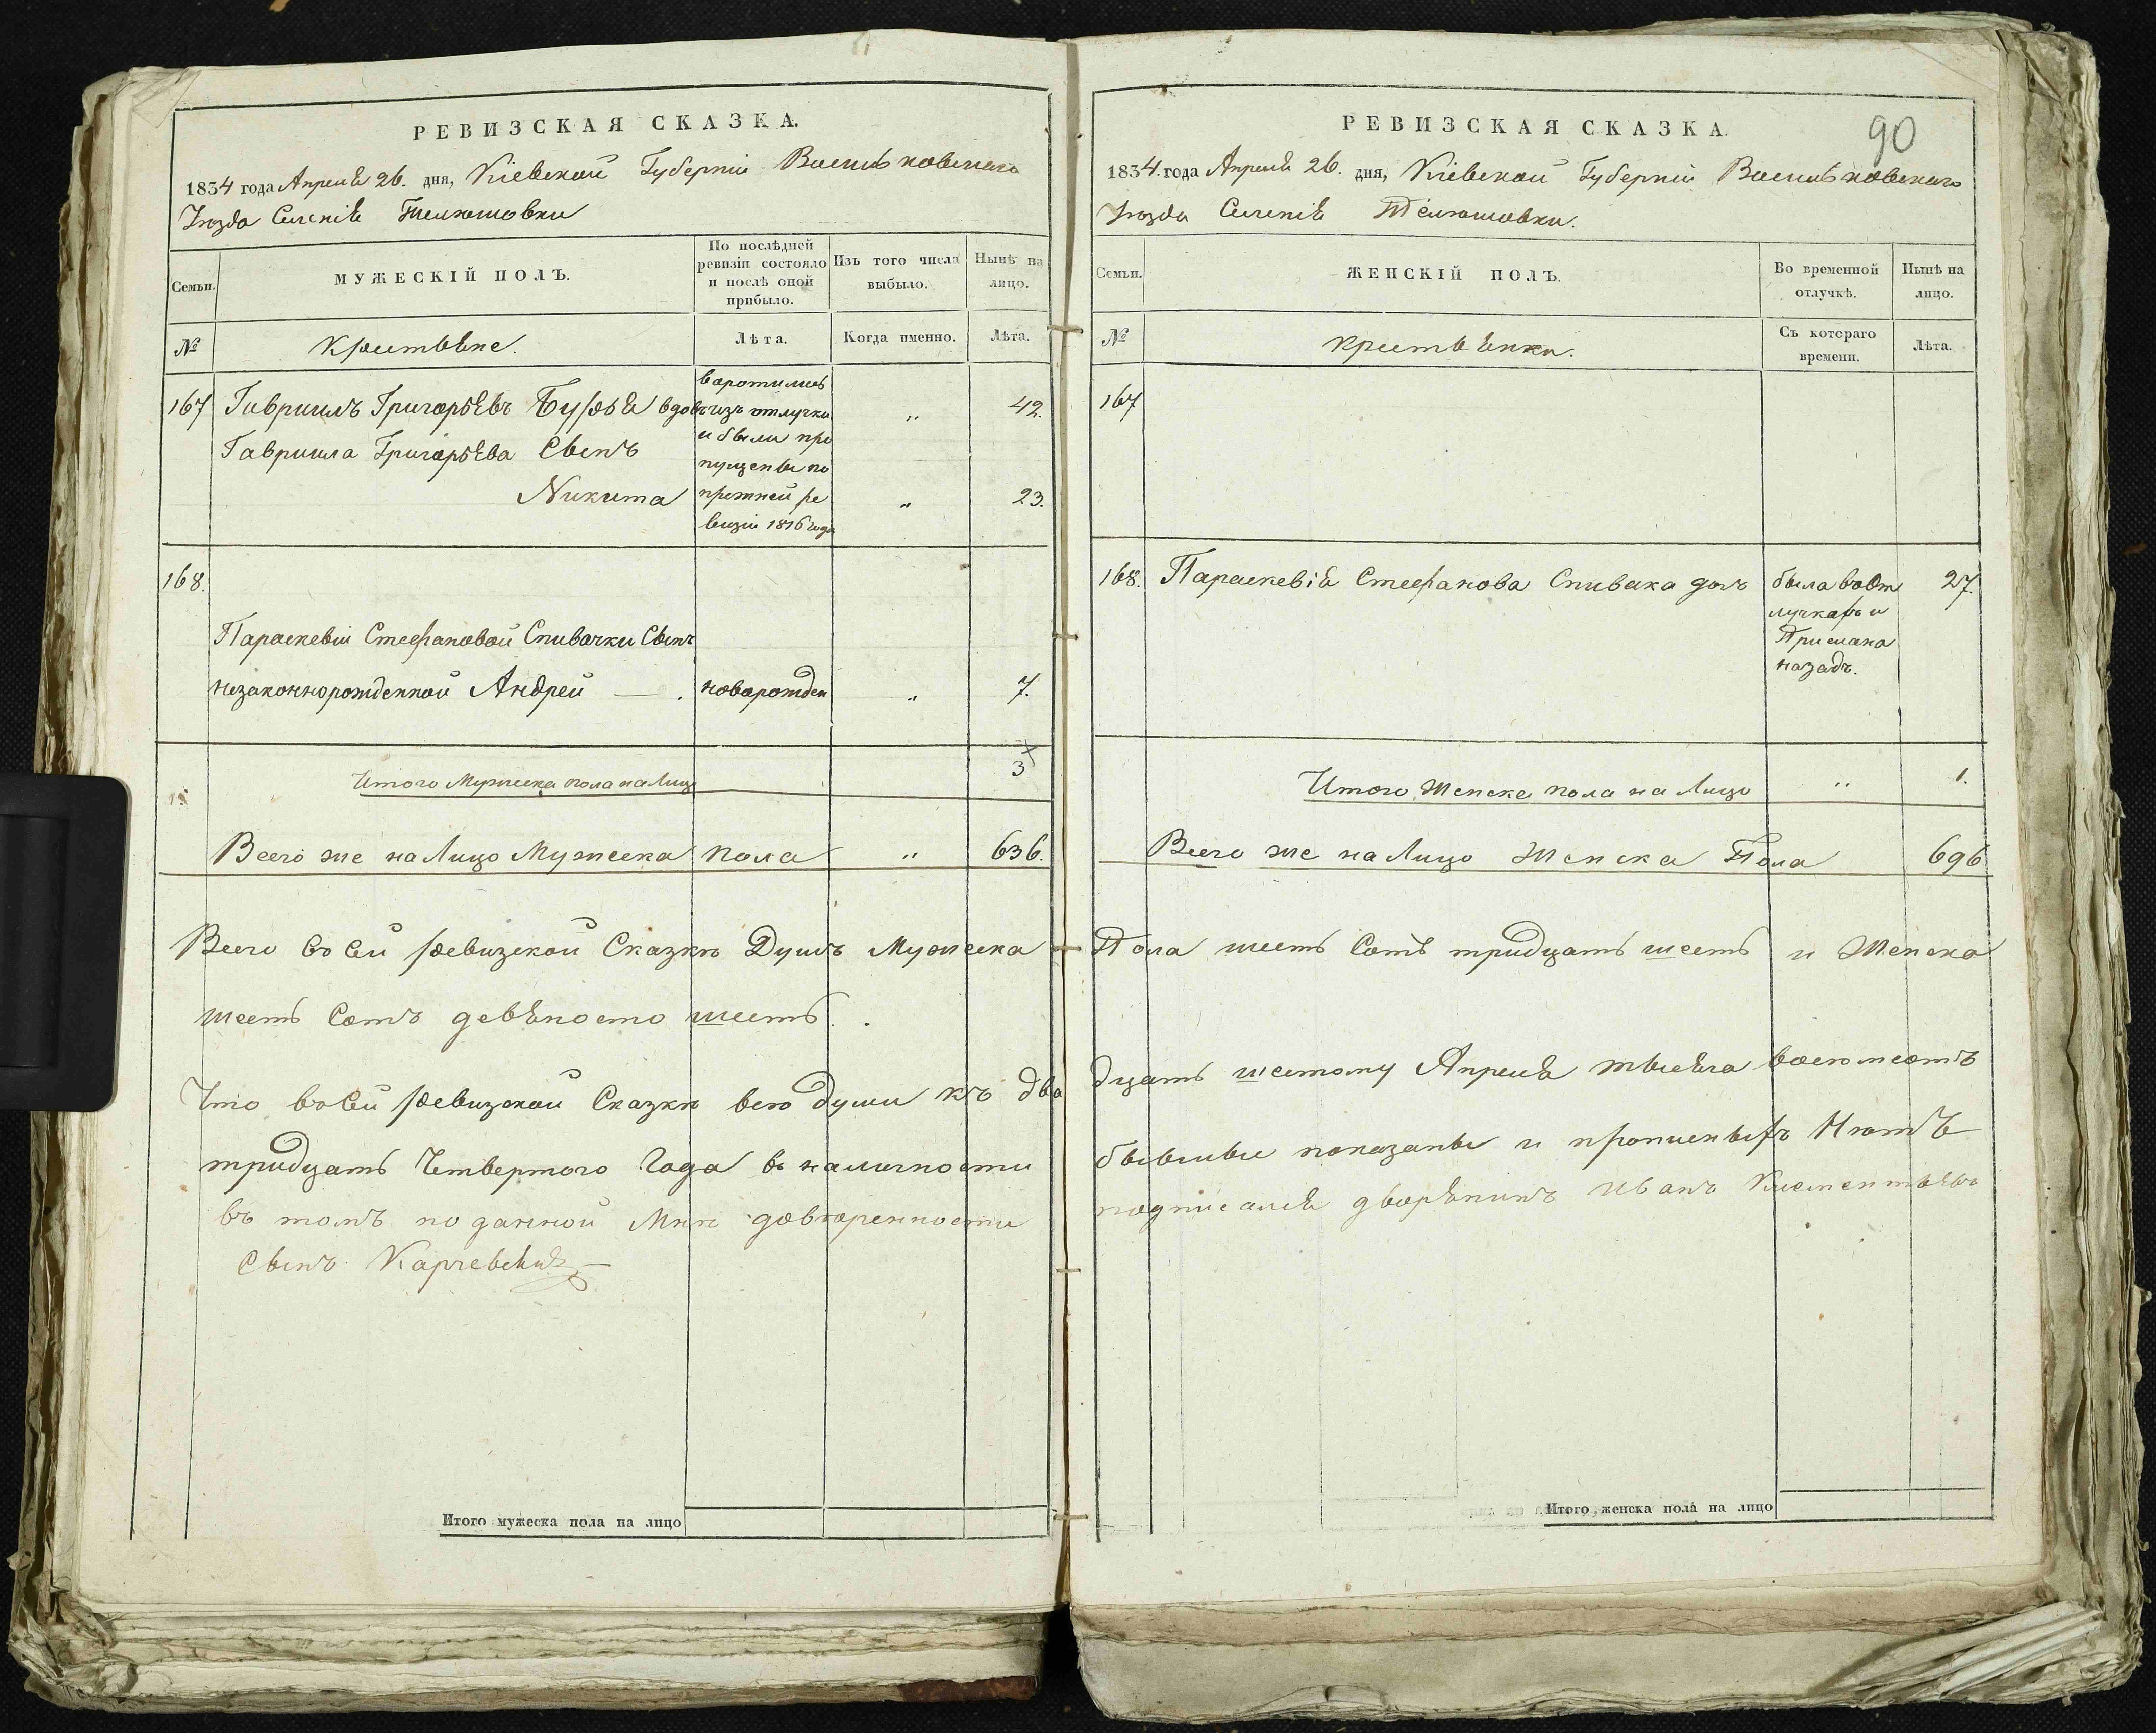 РЕВИЗСКАЯ СКАЗКА.
1834 года Апреля 26. дня, Кіевской Губерніи Васильковскаго
Уезда Селенія Телюшовки
Семьи.
МУЖЕСКІЙ ПОЛЪ.
По послѣдней
ревизіи состояло
и послѣ оной
прибыло.
Изъ того числа
выбыло.
Нынѣ на
лицо.
№
крестьяне.
Лѣта.
Когда именно.
Лѣта.
167 Гавриилъ Григорьевъ вдовъ „ 42.
воротились
изъ отлучки
и были про
пущены по
прежней ре
визіи 1816 года
Гавриила Григорьева Сынъ
Никита „ 23.
168.
Параскевіи Стефановой Спивачки Сынъ
незаконнорожденной Андрей — . новорожден „ 7.
Итого Мужеска пола на Лицо 3
Всего же на Лицо Мужеска пола „ 636.
Всего в сей ревизской Сказке Душъ Мужеска
шесть Сотъ девяносто шесть.
Что в сей ревизской Сказке все души къ два
тридцать Четвертого Года в наличности
въ томъ по данной Мне доверенности
Сынъ Карчевскій
Итого мужеска пола на лицо
90
РЕВИЗСКАЯ СКАЗКА.
1834. года Апреля 26. дня, Кіевской Губерніи Васильковскаго
Уезда Селенія Телюшовки.
Семьи.
ЖЕНСКІЙ ПОЛЪ.
Во временной
отлучкѣ.
Нынѣ на
лицо.
№
крестьянки.
Съ котораго
времени.
Лѣта.
167
168. Параскевія Стефанова Спивака дочъ 27.
была в от
лучкахъ и
Прислана
назадъ.
Итого женска пола на Лицо „ 1.
Всего же на Лицо Женска Пола 696
Пола шесть Сотъ тридцать шесть и Женска
дцать шестому Апреля тысяча восемсотъ
бывшие показаны и прописныхъ Нетъ
подписался дворянинъ Иванъ Клементьевъ
Итого женска пола на лицо